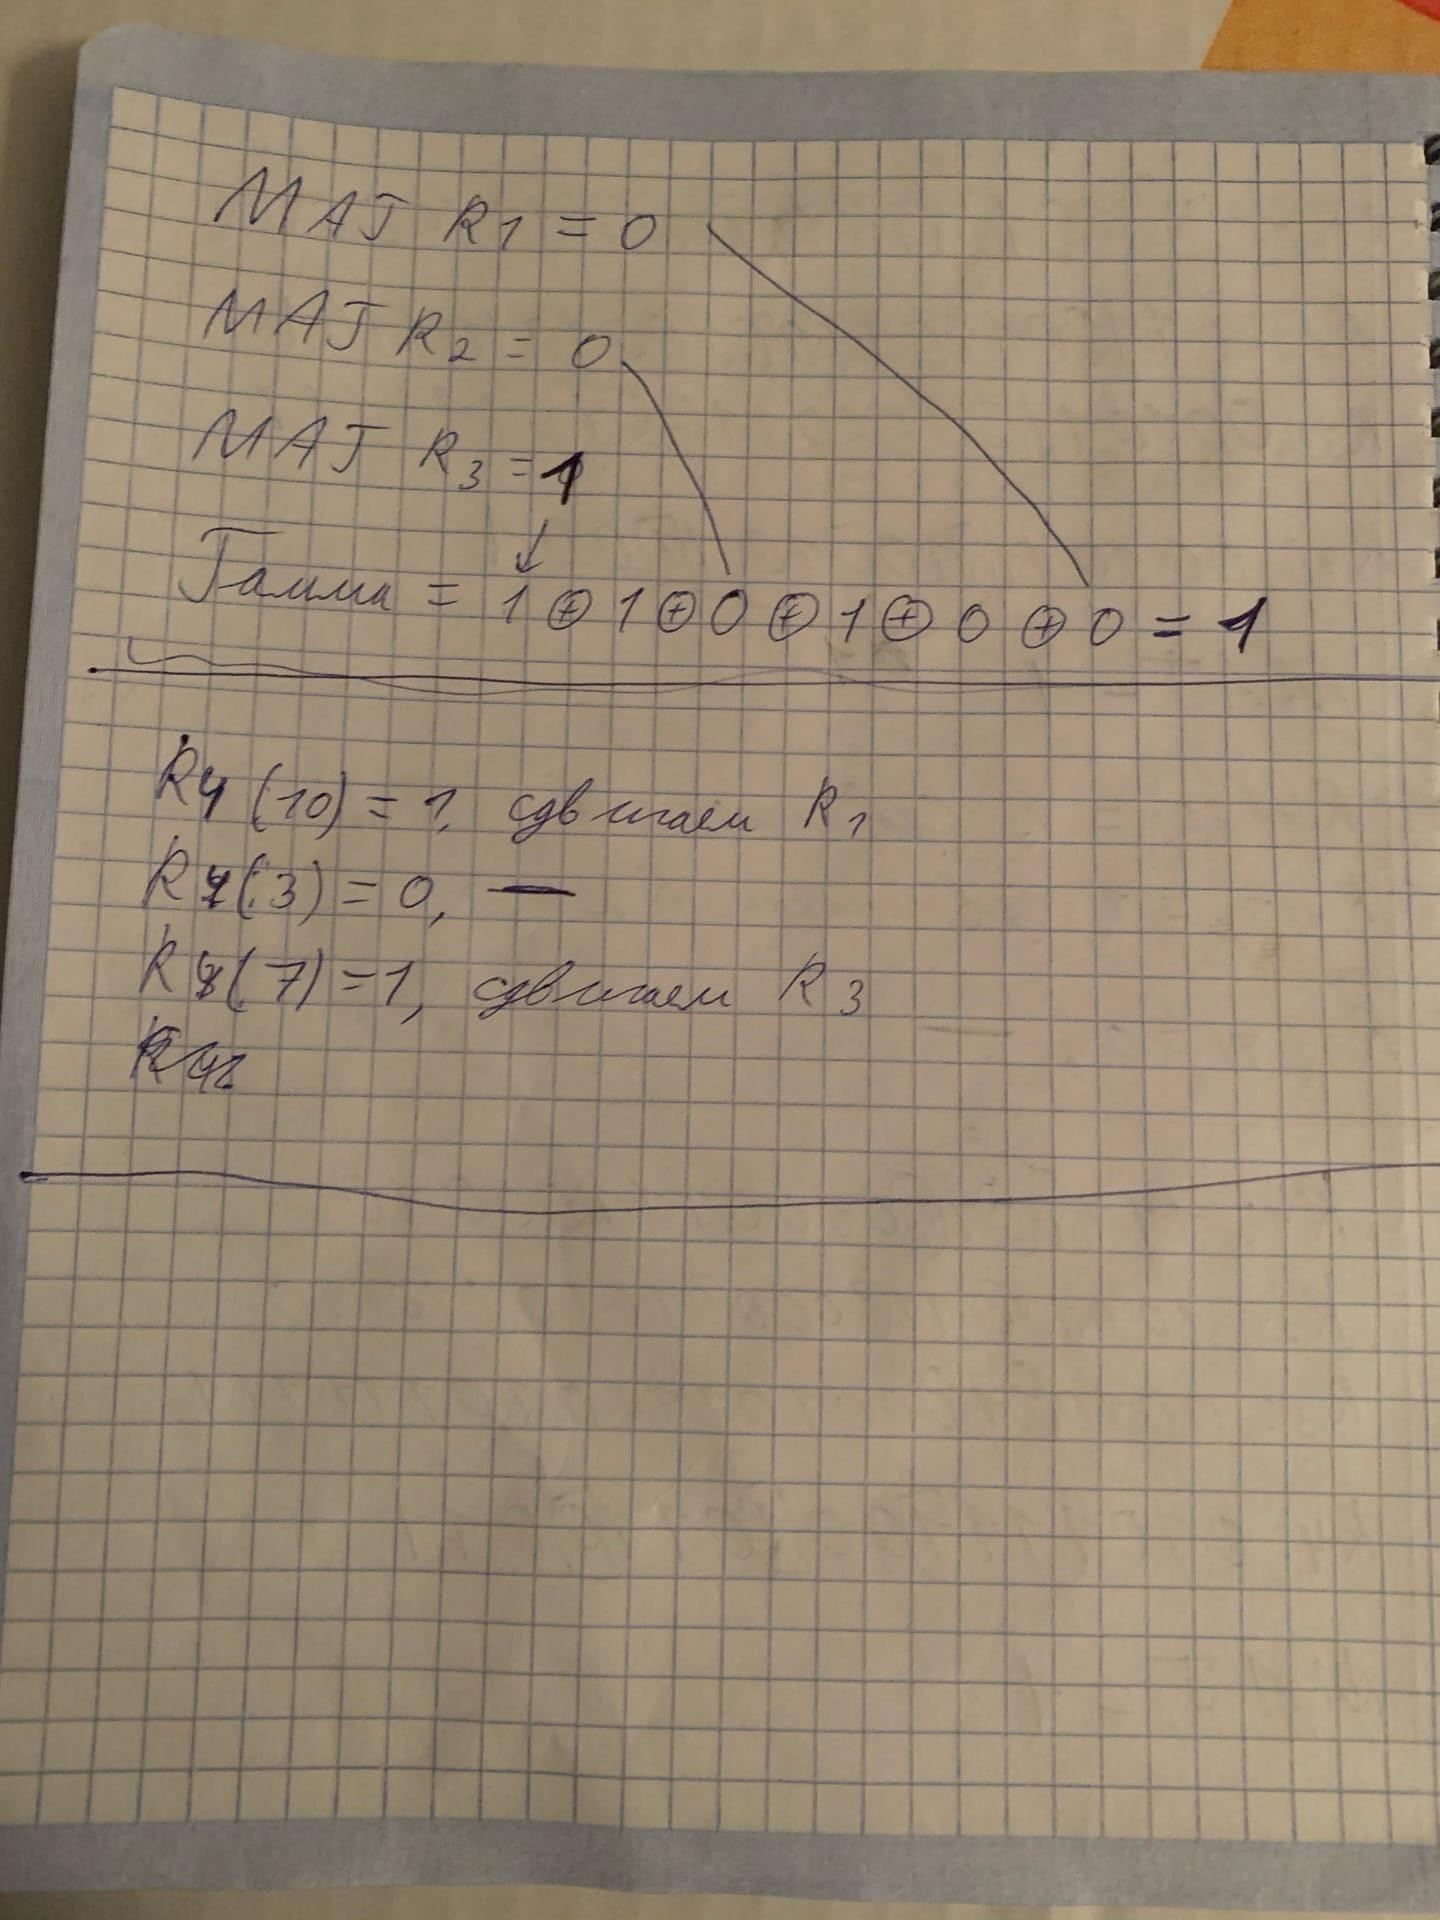 MAJ R1 = 0
MAJ R2 = 0
MAJ R3 = 1
Гамма = 1 ⊕ 1 ⊕ 0 ⊕ 1 ⊕ 0 ⊕ 0 = 1
R4 (10) = 1, сдвигаем R1
R4(3) = 0, —
R4(7) = 1, сдвигаем R3